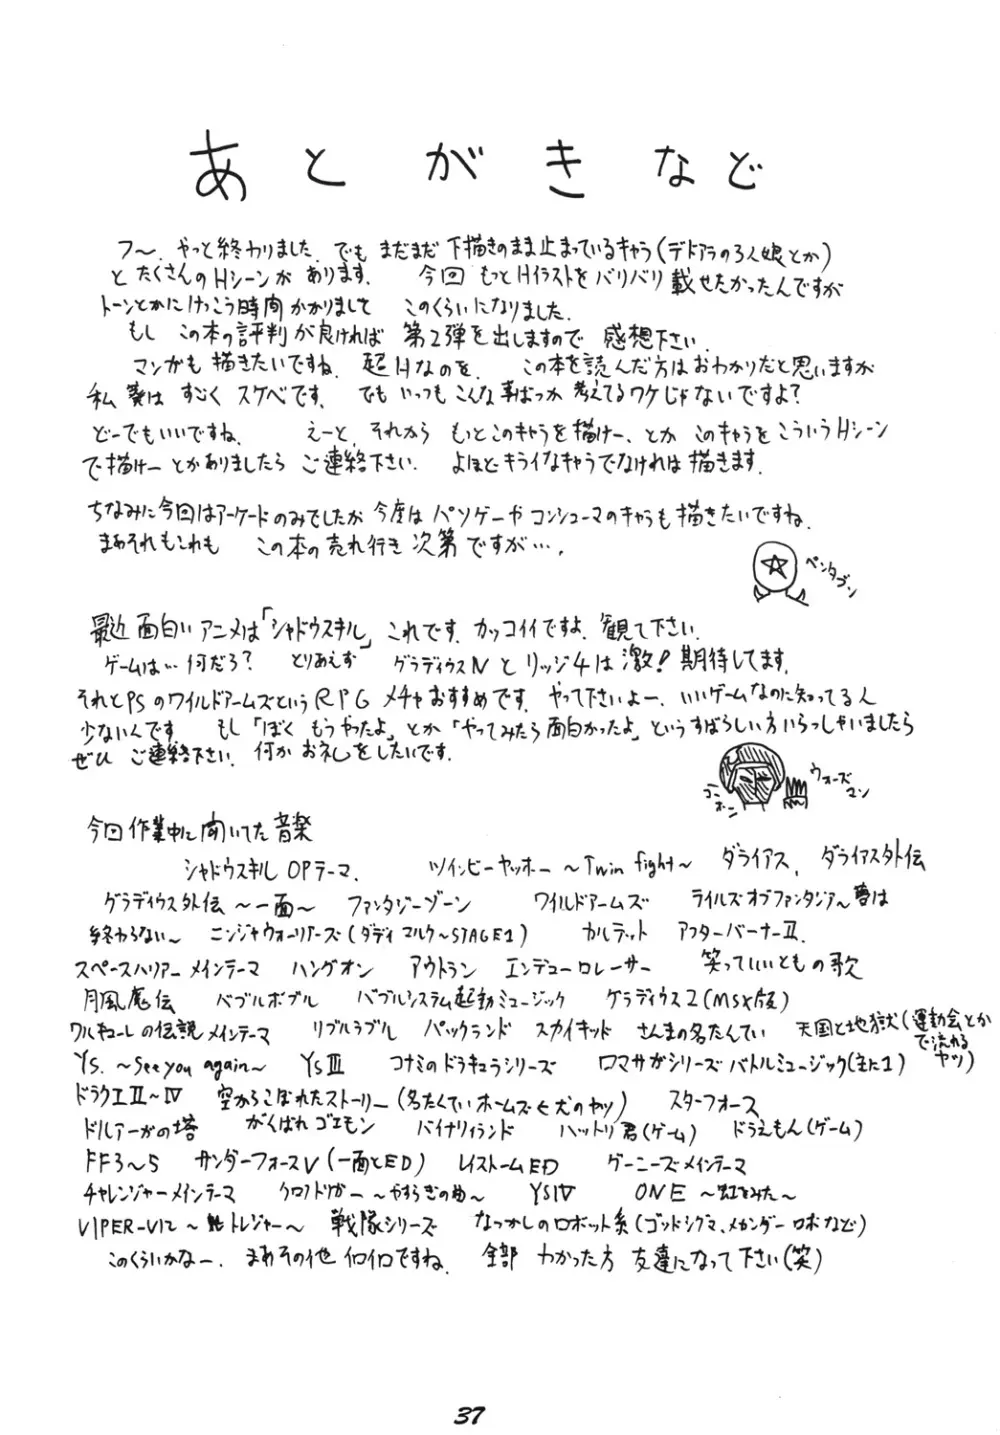 あとがきなど
フ〜、やっと終わりました。でも まだまだ 下描きのまま止まっているキャラ(デドアラの3人娘とか)
と たくさんのHシーンが あります。 今回 もっとHイラストを バリバリ 載せたかったんですが
トーンとかに けっこう時間 かかりまして このくらいになりました。
もし この本の評判が良ければ 第2弾を出しますので 感想下さい。
マンガも 描きたいですね。超Hなのを。 この本を読んだ方はおわかりだと思いますが
私 は すごく スケベです。 でも いっつも こんな事ばっか 考えてるワケじゃないですよ?
どーでもいいですね。 えーと、それから もっとこのキャラを描けー、とか このキャラを こういうHシーン
で描けー とかありましたら ご連絡下さい。 よほどキライなキャラでなければ 描きます。
ちなみに今回はアーケードのみでしたが 今度は パソゲーや コンシューマのキャラも 描きたいですね。
まあそれもこれも この本の売れ行き 次第ですが…。
ペンタゴン
最近 面白いアニメは「シャドウスキル」 これです。カッコイイですよ。観て下さい。
ゲームは… 何だろ? とりあえず グラディウスⅣ と リッジ4は 激!期待してます。
それとPSのワイルドアームズという RPG メチャおすすめです。やって下さいよー、いいゲームなのに知ってる人
少ないんです。 もし「ぼく もうやったよ」とか「やってみたら面白かったよ」という すばらしい方 いらっしゃいましたら
ぜひ ご連絡下さい。何か お礼をしたいです。
コーホー
ウォーズマン
今回 作業中に 聞いてた 音楽
シャドウスキル OPテーマ、 ツインビーヤッホー 〜Twin fight〜 ダライアス、 ダライアス外伝
グラディウス外伝 〜一面〜 ファンタジーゾーン ワイルドアームズ テイルズオブファンタジア〜夢は
終わらない〜 ニンジャウォーリアーズ(ダディマルク〜STAGE1) カルテット アフターバーナーⅡ、
スペースハリアー メインテーマ ハングオン アウトラン エンデューローレーサー 笑っていいともの歌
月風魔伝 バブルボブル バブルシステム起動ミュージック グラディウス2(MSX版)
ワルキューレの伝説 メインテーマ リブルラブル パックランド スカイキッド さんまの名たんてい 天国と地獄(運動会とか
で流れる
ヤツ)
Ys. 〜See you again〜 YsⅢ コナミのドラキュラシリーズ ロマサガシリーズ バトルミュージック(主に1)
ドラクエⅡ〜Ⅳ 空からこぼれたストーリー(名たんていホームズ 犬のヤツ) スターフォース
ドルアーガの塔 がんばれゴエモン バイナリィランド ハットリ君(ゲーム) ドラえもん(ゲーム)
FF3〜5 サンダーフォースⅤ(一面とED) レイストームED グーニーズメインテーマ
チャレンジャーメインテーマ クロノトリガー 〜やすらぎの 〜 YSⅣ ONE 〜虹をみた〜
VIPER-V12 〜 トレジャー〜 戦隊シリーズ なつかしのロボット系(ゴッドシグマ、メカンダーロボなど)
このくらいかなー、 まあその他 イロイロですね。 全部 わかった方 友達になって下さい(笑)
37